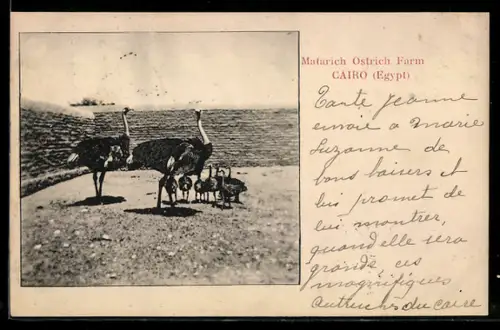 Matarich Ostrich Farm
CAIRO (Egypt)
Tante Jeanne
envoie a Marie
Suzanne de
bons baisers et
lui promet de
lui montrer,
quand elle sera
grande ces
magnifiques
Autruches du Caire